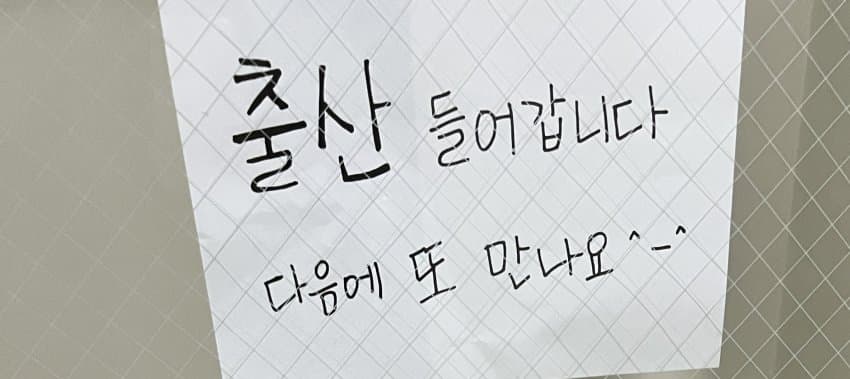 출산 들어갑니다
다음에 또 만나요^-^